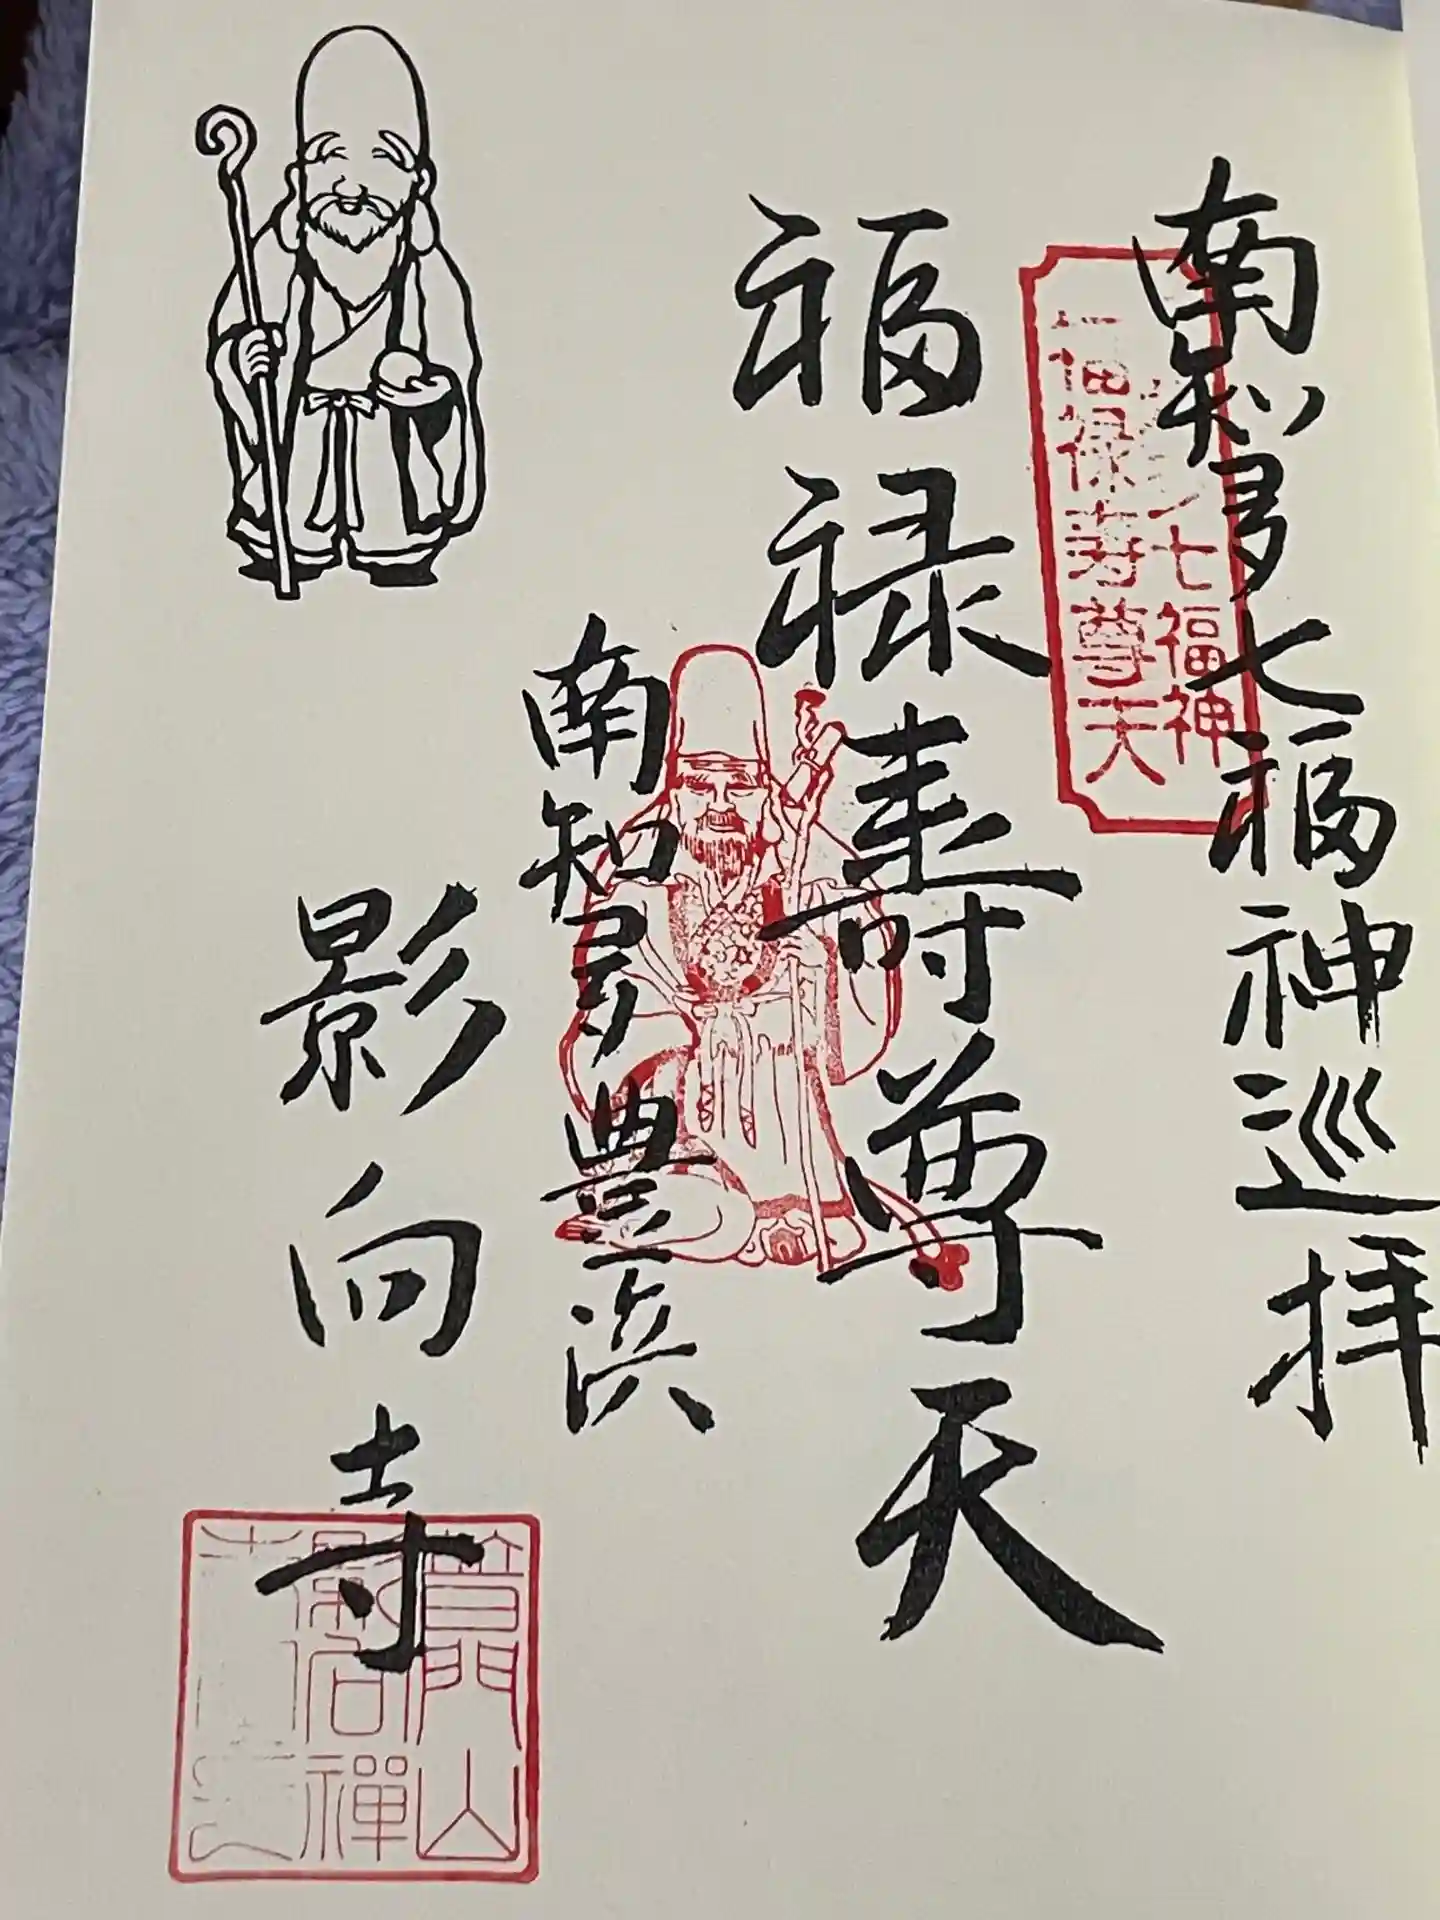 南知多七福神巡拝
七福神
福禄寿尊天
福禄寿尊天
南知多豊浜
影向寺
普門山
影向禅